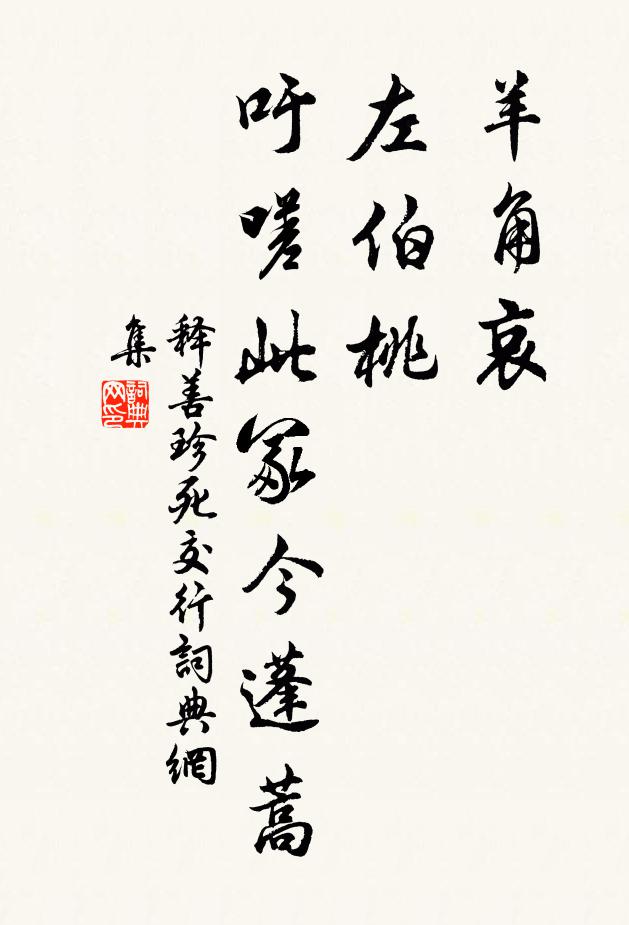 羊角哀
左伯桃
吁嗟此冢今蓬蒿
释善珍死交行詞典網
集
詞典
网印